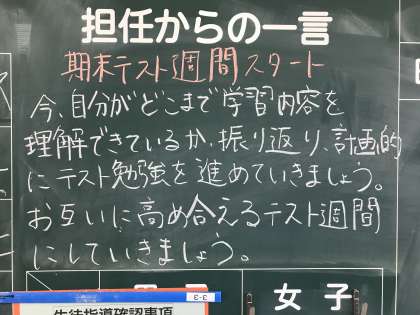 担任からの一言
期末テスト週間スタート
今、自分がどこまで学習内容を
理解できているか、振り返り、計画的
にテスト勉強を進めていきましょう。
お互いに高め合えるテスト週間
にしていきましょう。
女子
生徒指導確認事項